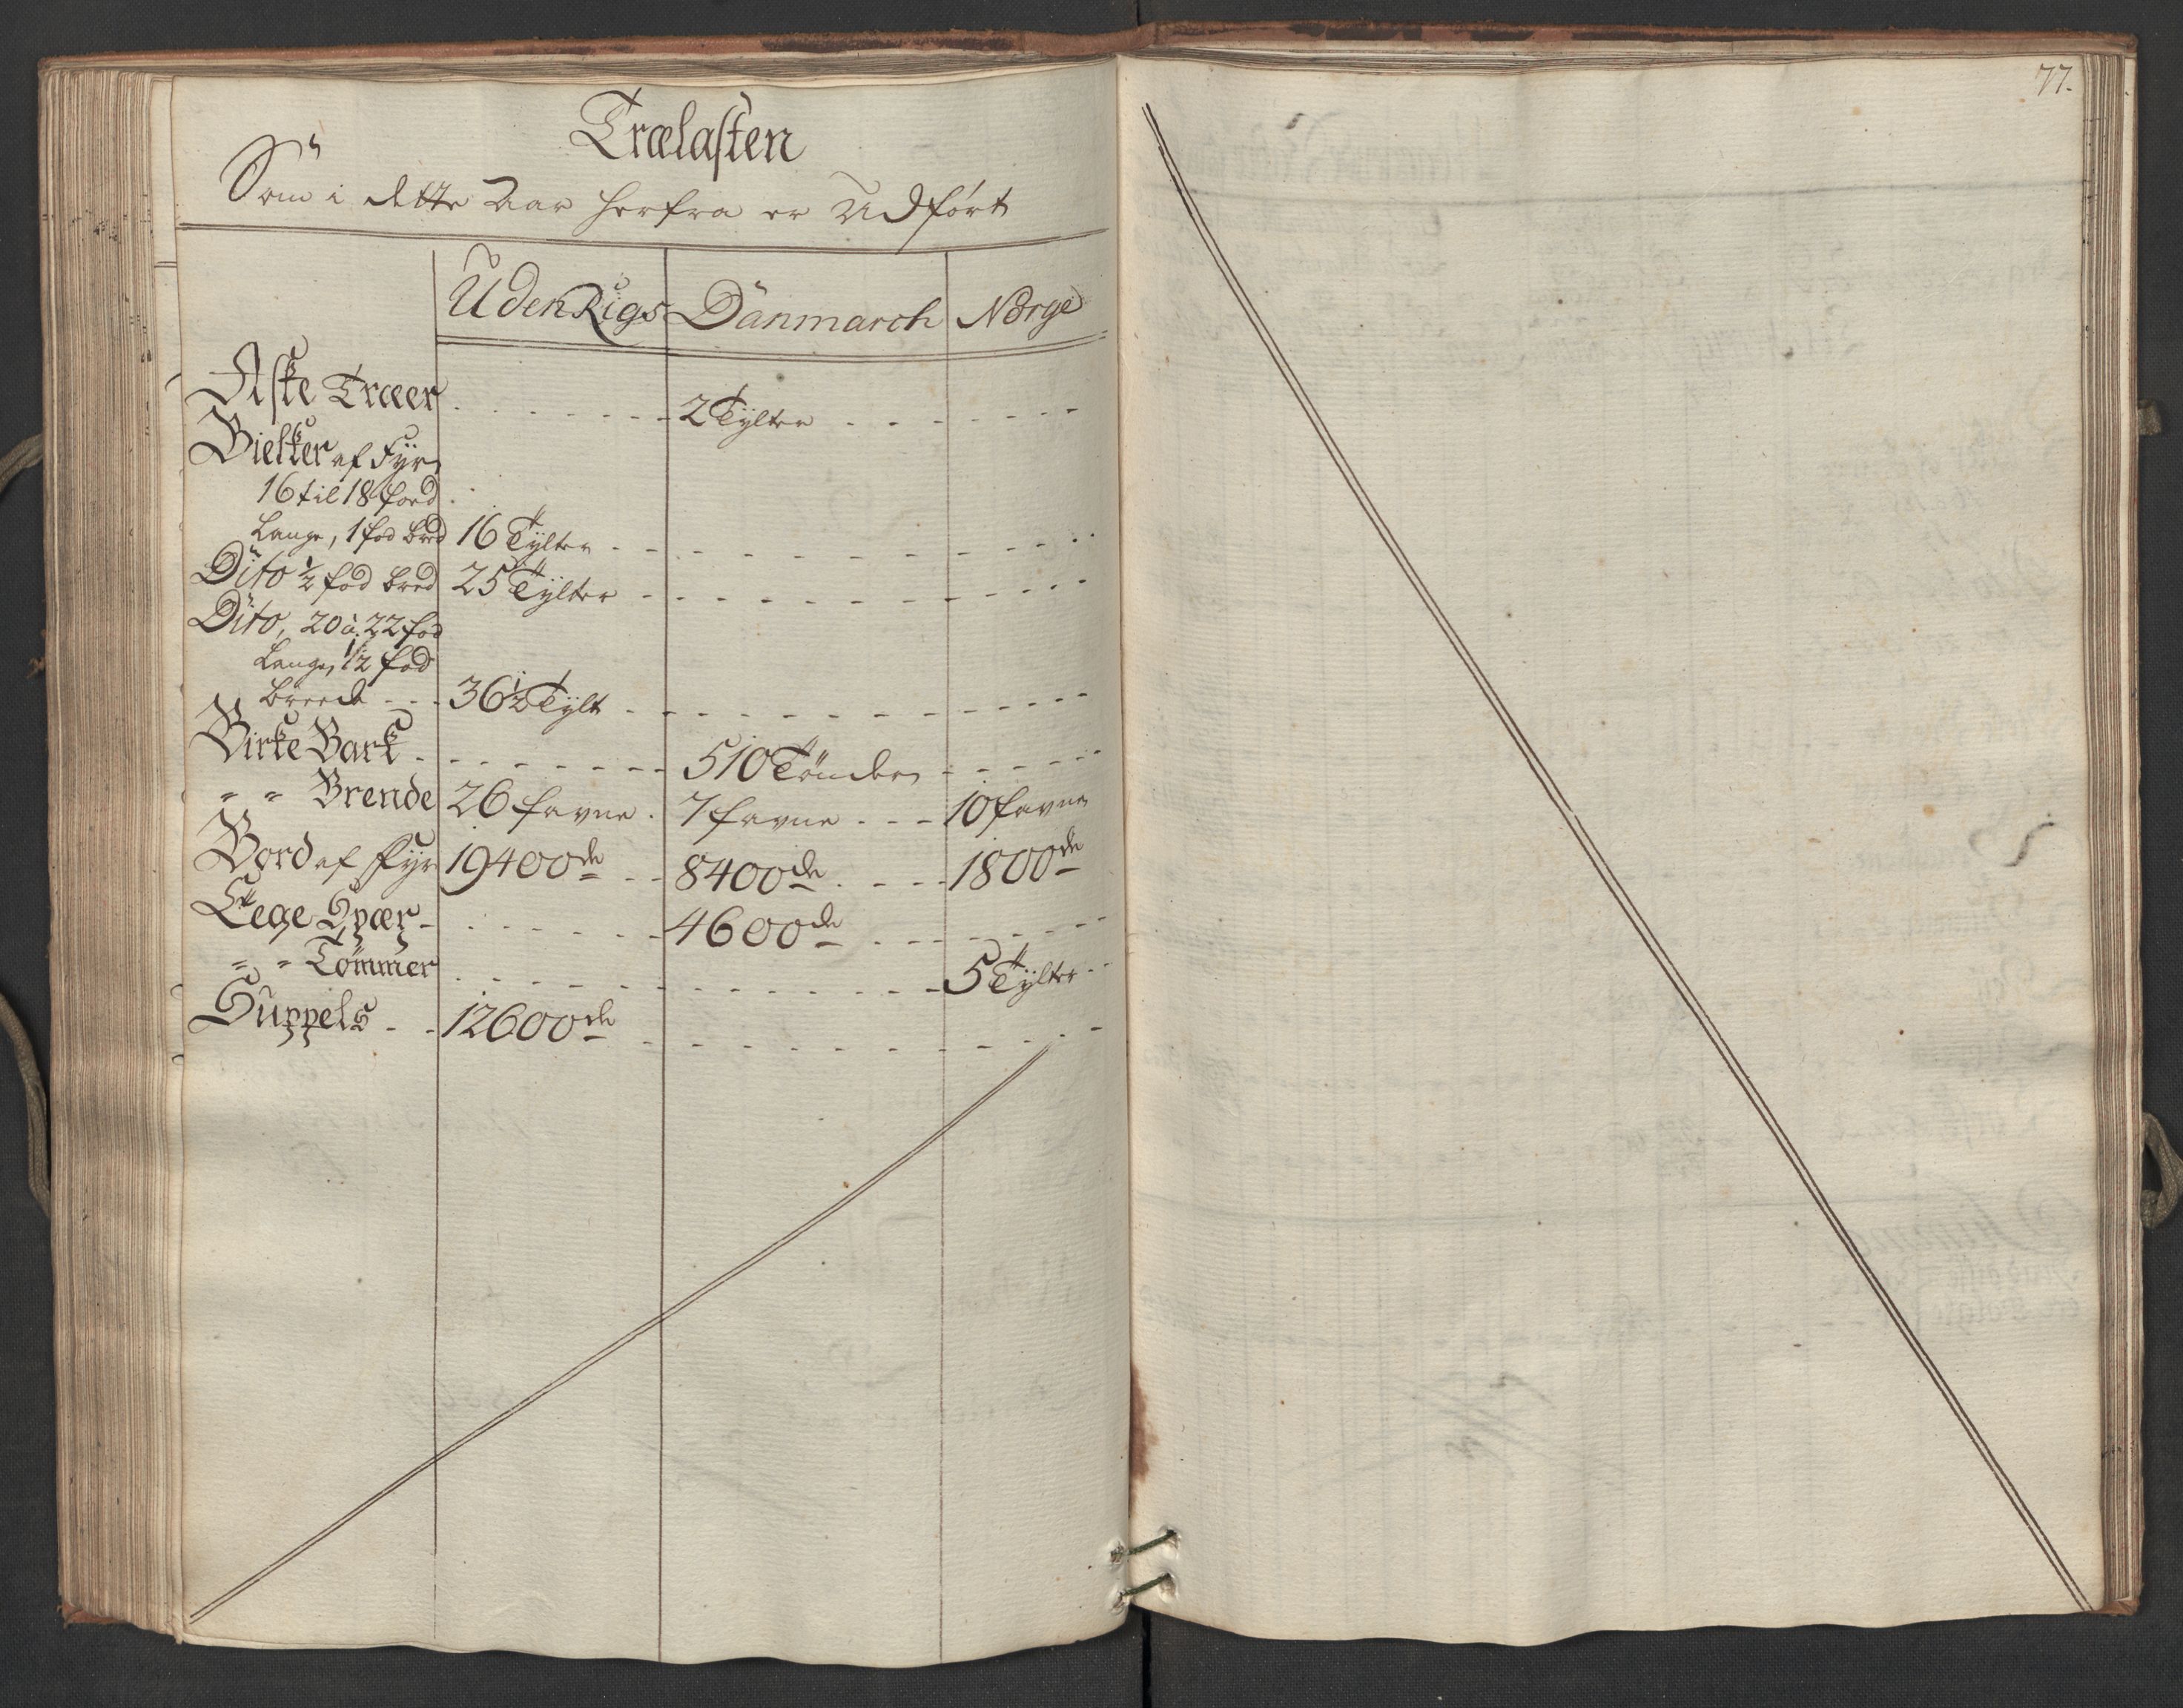 77.
Trælasten
Som i dette Aar herfra er Udført
UdenRigs Danmarch Norge
Aske Træer 2 Tÿlter
Bielker af Fÿr
16 til 18 foed
Lange, 1 fod bred 16 Tÿlter
Dito ½ fod bred 25 Tÿlter
Dito, 20 à 22 fod
Lange, ½ fod
breede 36½ Tÿlt
Birke Bark 510 Tønder
" " Brende 26 favne 7 favne 10 favne
Bord af Fÿr 19400de 8400de 1800de
Eege Spær 4600de
" " Tømmer 5 Tÿlter
Suppels 12600de